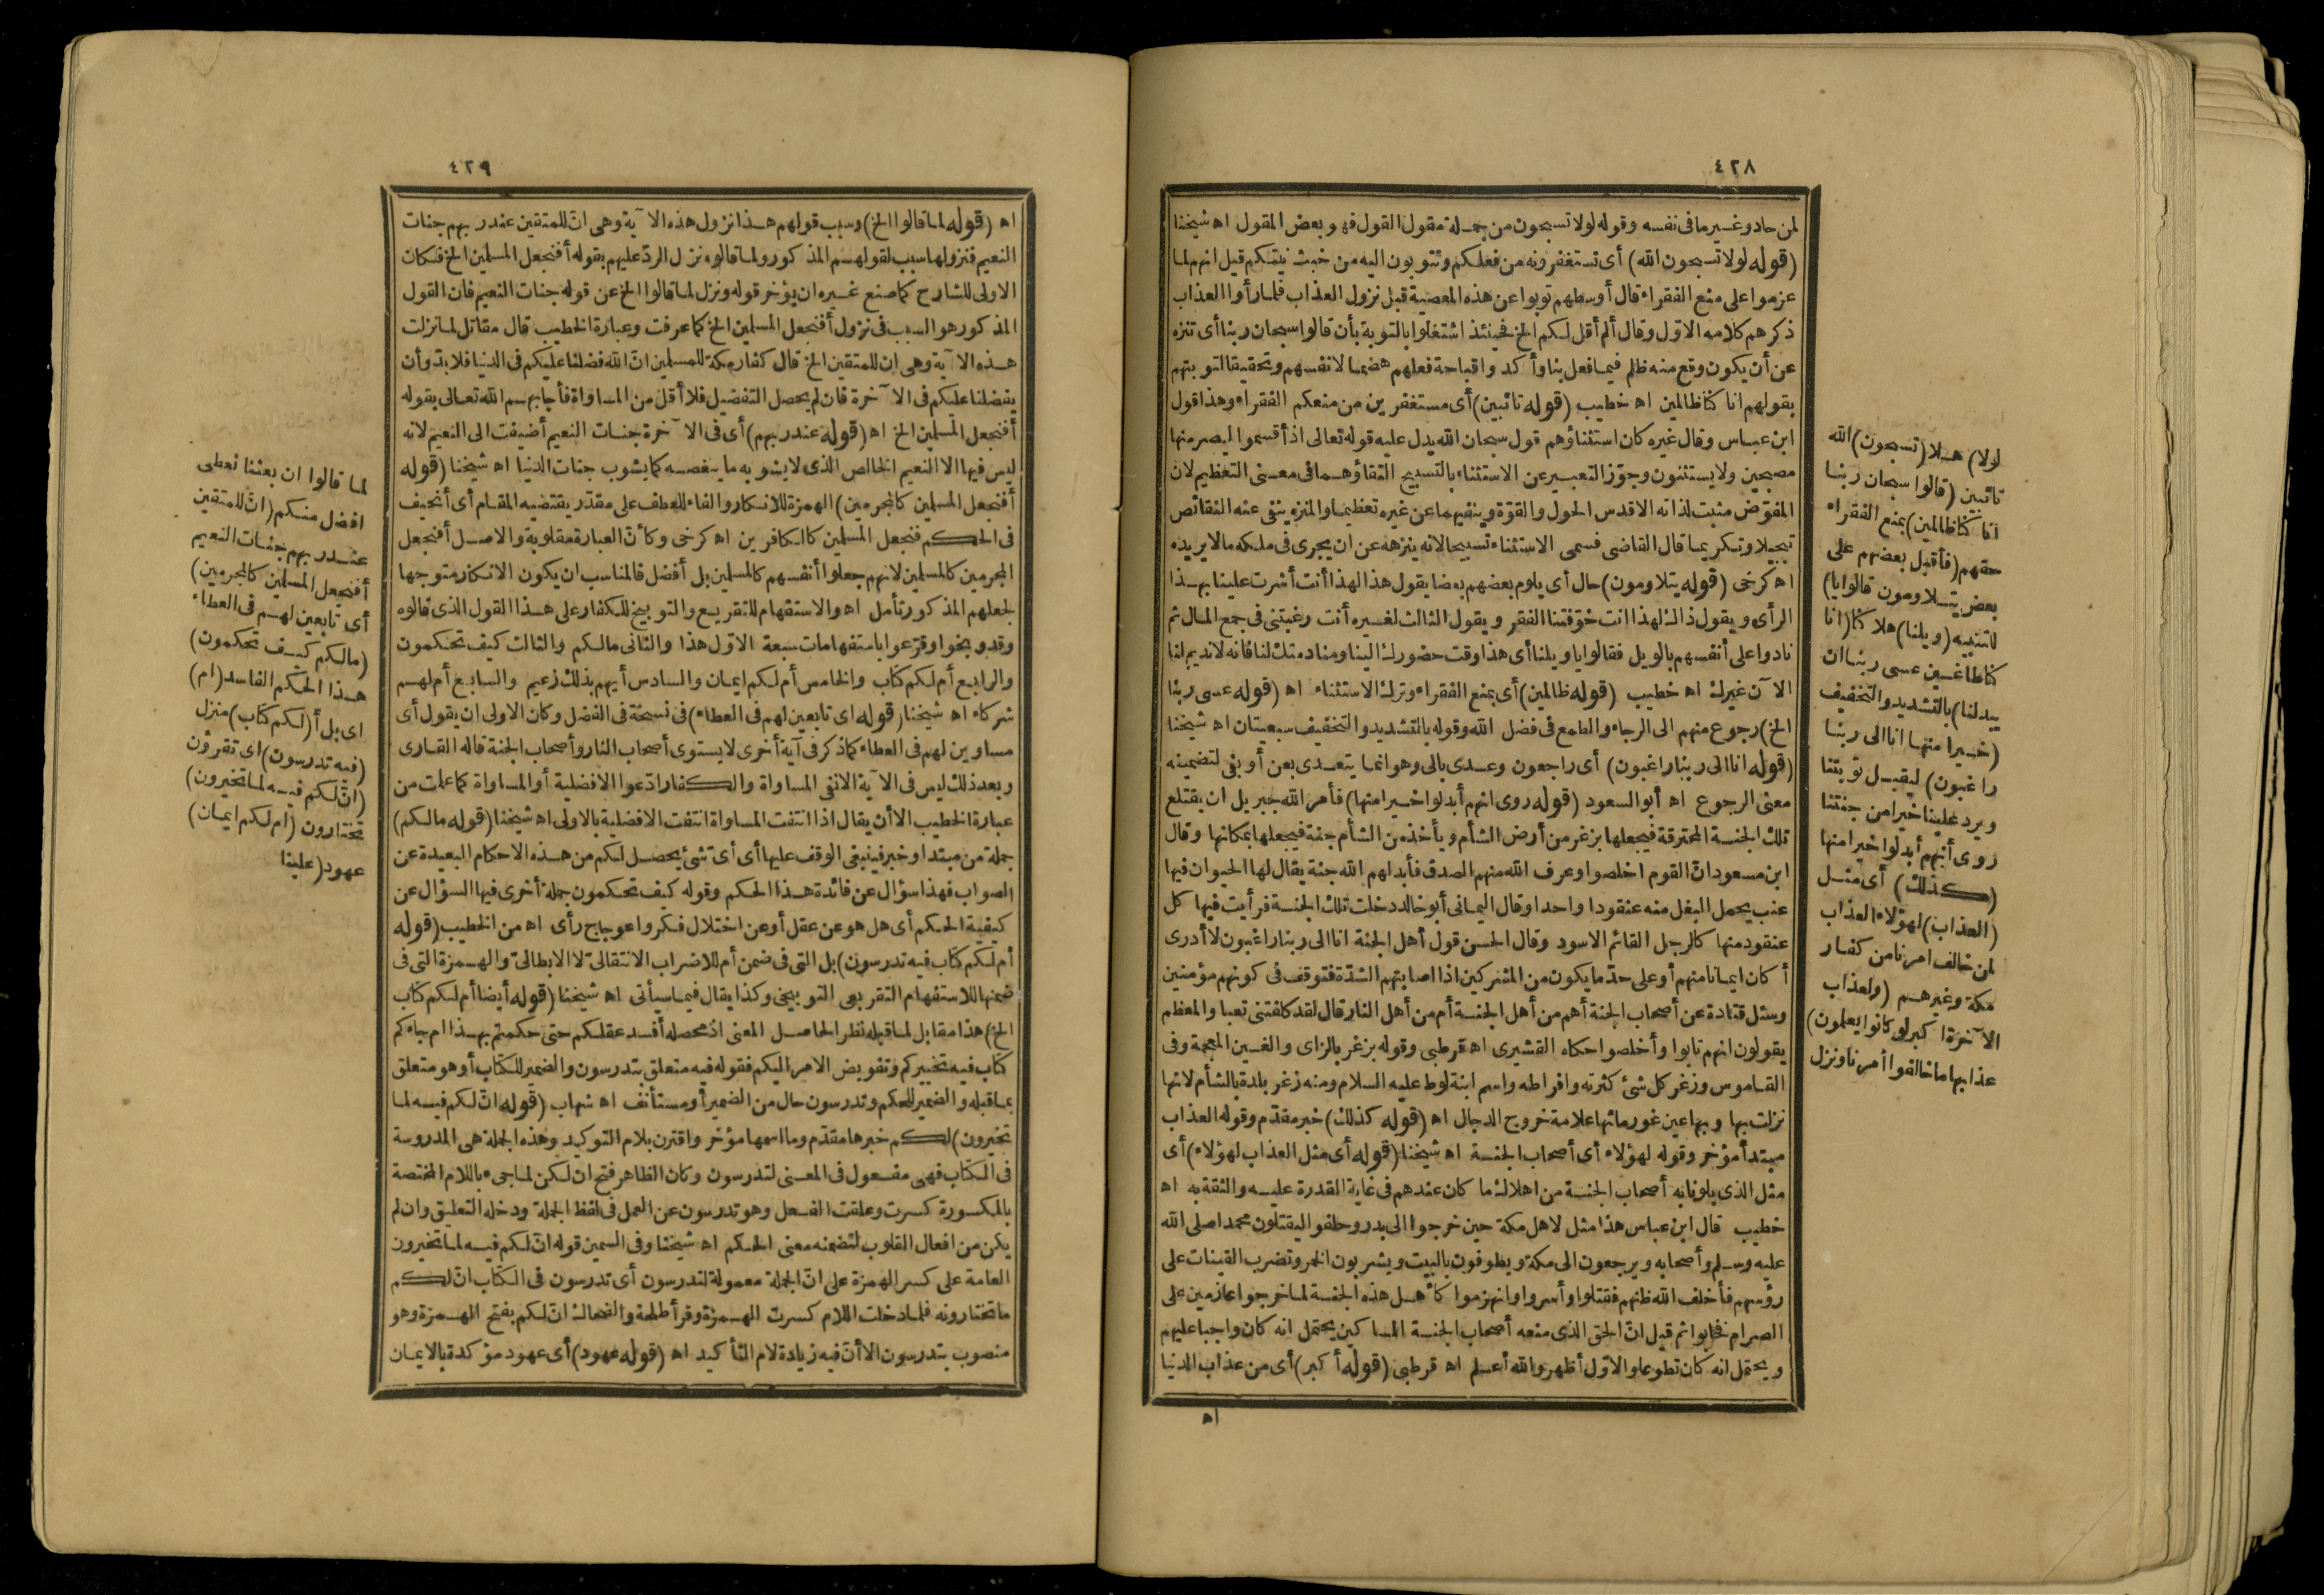 ٤٢٨
لمن حاد وغيرما فى نفسه وقوله لولا تسبحون من جملة مقول القول فهو بعض المقول اه شيخنا
(قوله لولا تسبحون الله) أى تستغفرونه من فعلكم وتتوبون اليه من خبث نيتكم قيل انهم لما
عزموا على منع الفقراء قال أوسطهم توبوا عن هذه المعصية قبل نزول العذاب فلما رأوا العذاب
ذكرهم كلامه الاول وقال ألم أقل لكم الخ فحينئذ اشتغلوا بالتوبة بأن قالوا سبحان ربنا أى تنزه
عن أن يكون وقع منه ظلم فيما فعل بنا وأكدوا قباحة فعلهم هضما لانفسهم وتحقيقا لتوبتهم
بقولهم انا كنا ظالمين اه خطيب (قوله تائبين) أى مستغفرين من منعكم الفقراء وهذا قول
ابن عباس وقال غيره كان استثناؤهم قول سبحان الله يدل عليه قوله تعالى اذ أقسموا ليصرمنها
مصبحين ولا يستثنون وجوّز التعبير عن الاستثناء بالتسبيح التقاؤهما فى معنى التعظيم لان
المفوّض مثبت لذاته الاقدس الحول والقوّة وينفيهما عن غيره تعظيما والمنزه ينفى عنه النقائص
تبجيلا وتكريما قال القاضى فسمى الاستثناء تسبيحا لانه ينزهه عن ان يجرى فى ملكه مالا يريده
اه كرخى (قوله يتلاومون) حال أى يلوم بعضهم بعضا يقول هذا لهذا أنت أشرت علينا بهذا
الرأى ويقول ذاك لهذا أنت خوّفتنا الفقر ويقول الثالث لغيره أنت رغبتنى فى جمع المال ثم
نادوا على أنفسهم بالويل فقالوا ياويلنا أى هذا وقت حضورك الينا ومنادمتك لنا فانه لا نديم لنا
الآن غيرك اه خطيب (قوله ظالمين) أى بمنع الفقراء وترك الاستثناء اه (قوله عسى ربنا
الخ) رجوع منهم الى الرجاء والطمع فى فضل الله وقوله بالتشديد والتخفيف سبعيتان اه شيخنا
(قوله انا الى ربنا راغبون) أى راجعون وعدى بالى وهو انما يتعدى بعن أو بفى لتضمينه
معنى الرجوع اه أبو السعود (قوله روى انهم أبدلوا خيرا منها) فأمر الله جبريل ان يقتلع
تلك الجنة المحترقة فيجعلها بزغر من أرض الشأم ويأخذ من الشأم جنة فيجعلها مكانها وقال
ابن مسعود انّ القوم اخلصوا وعرف الله منهم الصدق فأبدلهم الله جنة يقال لها الحيوان فيها
عنب يحمل البغل منه عنقودا واحدا وقال اليمانى أبو خالد دخلت تلك الجنة فرأيت فيها كل
عنقود منها كالرجل القائم الاسود وقال الحسن قول أهل الجنة انا الى ربنا راغبون لا أدرى
أكان ايمانا منهم أو على حد ما يكون من المشركين اذا اصابتهم الشدّة فتوقف فى كونهم مؤمنين
وسئل قتادة عن أصحاب الجنة أهم من أهل الجنة أم من أهل النار قال لقد كلفتنى تعبا والمعظم
يقولون انهم تابوا وأخلصوا حكاه القشيرى اه قرطبى وقوله بزغر بالزاى والغين المعجمة وفى
القاموس وزغر كل شئ كثرته وافراطه واسم ابنة لوط عليه السلام ومنه زغر بلدة بالشأم لانها
نزلت بها وبها عين غور مائها علامة خروج الدجال اه (قوله كذلك) خبر مقدّم وقوله العذاب
مبتدأ مؤخر وقوله لهؤلاء أى أصحاب الجنة اه شيخنا (قوله أى مثل العذاب لهؤلاء) أى
مثل الذى بلونا به أصحاب الجنة من اهلاك ما كان عندهم فى غاية القدرة عليه والثقة به اه
خطيب قال ابن عباس هذا مثل لاهل مكة حين خرجوا الى بدر وحلفوا ليقتلون محمدا صلى الله
عليه وسلم وأصحابه ويرجعون الى مكة ويطوفون بالبيت ويشربون الخمر وتضرب القينات على
رؤسهم فأخلف الله ظنهم فقتلوا وأسروا وانهزموا كأهل هذه الجنة لما خرجوا عازمين على
الصرام فخابوا ثم قيل انّ الحق الذى منعه أصحاب الجنة المساكين يحتمل انه كان واجبا عليهم
ويحتمل انه كان تطوعا والاوّل أظهر والله أعلم اه قرطبى (قوله أكبر) أى من عذاب الدنيا
اه
لولا) هلا (تسبحون) الله
تائبين (قالوا سبحان ربنا
انا كنا ظالمين) بمنع الفقراء
حقهم (فأقبل بعضهم على
بعض يتلاومون قالوا يا)
للتنبيه (ويلنا) هلا كنا (انا
كنا طاغين عسى ربنا ان
يبدلنا) بالتشديد والتخفيف
(خيرا منها انا الى ربنا
راغبون) ليقبل توبتنا
ويرد علينا خيرا من جنتنا
روى أنهم أبدلوا خيرا منها
(كذلك) أى مثل
(العذاب) لهؤلاء العذاب
لمن خالف امرنا من كفار
مكة وغيرهم (ولعذاب
الآخرة اكبر لو كانوا يعلمون)
عذابها ما خالفوا أمرنا ونزل
٤٢٩
اه (قوله لما قالوا الخ) وسبب قولهم هذا نزول هذه الآية وهى انّ للمتقين عند ربهم جنات
النعيم فنزولها سبب لقولهم المذكور ولما قالوه نزل الردّ عليهم بقوله أفنجعل المسلمين الخ فكان
الاولى للشارح كما صنع غيره ان يؤخر قوله ونزل لما قالوا الخ عن قوله جنات النعيم فان القول
المذكور هو السبب فى نزول أفنجعل المسلمين الخ كما عرفت وعبارة الخطيب قال مقاتل لما نزلت
هذه الآية وهى ان للمتقين الخ قال كفار مكة للمسلمين انّ الله فضلنا عليكم فى الدنيا فلا بدّ وأن
يفضلنا عليكم فى الآخرة فان لم يحصل التفضيل فلا أقل من المساواة فأجابهم الله تعالى بقوله
أفنجعل المسلمين الخ اه (قوله عند ربهم) أى فى الآخرة جنات النعيم أضيفت الى النعيم لانه
ليس فيها الا النعيم الخالص الذى لا يشوبه ما ينغصه كما يشوب جنات الدنيا اه شيخنا (قوله
أفنجعل المسلمين كالمجرمين) الهمزة للانكار والفاء للعطف على مقدّر يقتضيه المقام أى أنحيف
فى الحكم فنجعل المسلمين كالكافرين اه كرخى وكأنّ العبارة مقلوبة والاصل أفنجعل
المجرمين كالمسلمين لانهم جعلوا أنفسهم كالمسلمين بل أفضل فالمناسب ان يكون الانكار متوجها
لجعلهم المذكور تأمل اه والاستفهام للتقريع والتوبيخ للكفار على هذا القول الذى قالوه
وقد وبخوا وقرّعوا باستفهامات سبعة الاوّل هذا والثانى مالكم والثالث كيف تحكمون
والرابع أم لكم كتاب والخامس أم لكم ايمان والسادس أيهم بذلك زعيم والسابع أم لهم
شركاء اه شيخنا (قوله اى تابعين لهم فى العطاء) فى نسخة فى الفضل وكان الاولى ان يقول أى
مساوين لهم فى العطاء كما ذكر فى آية أخرى لا يستوى أصحاب النار وأصحاب الجنة قاله القارى
وبعد ذلك ليس فى الآية الا نفى المساواة والكفار ادّعوا الافضلية أو المساواة كما علمت من
عبارة الخطيب الا أن يقال اذا انتفت المساواة انتفت الافضلية بالاولى اه شيخنا (قوله مالكم)
جملة من مبتدا وخبر فينبغى الوقف عليها أى أىّ شئ يحصل لكم من هذه الاحكام البعيدة عن
الصواب فهذا سؤال عن فائدة هذا الحكم وقوله كيف تحكمون جملة أخرى فيها السؤال عن
كيفية الحكم أى هل هو عن عقل أو عن اختلال فكر واعوجاج رأى اه من الخطيب (قوله
أم لكم كتاب فيه تدرسون) بل التى فى ضمن أم للاضراب الانتقالىّ لا الابطالىّ والهمزة التى فى
ضمنها للاستفهام التقريعى التوبيخى وكذا يقال فيما سيأتى اه شيخنا (قوله أيضا أم لكم كتاب
الخ) هذا مقابل لما قبله نظر الحاصل المعنى اذ محصله أفسد عقلكم حتى حكمتم بهذا ام جاءكم
كتاب فيه تخييركم وتفويض الامر اليكم فقوله فيه متعلق بتدرسون والضمير للكتاب أو هو متعلق
بما قبله والضمير للحكم وتدرسون حال من الضمير أو مستأنف اه شهاب (قوله انّ لكم فيه لما
تخيرون) لكم خبرها مقدّم وما اسمها مؤخر واقترن بلام التوكيد وهذه الجملة هى المدروسة
فى الكتاب فهى مفعول فى المعنى لتدرسون وكان الظاهر فتح ان لكن لما جىء باللام المختصة
بالمكسورة كسرت وعلقت الفعل وهو تدرسون عن العمل فى لفظ الجملة ودخله التعليق وان لم
يكن من افعال القلوب لتضمنه معنى الحكم اه شيخنا وفى السمين قوله انّ لكم فيه لما تخيرون
العامة على كسر الهمزة على انّ الجملة معمولة لتدرسون أى تدرسون فى الكتاب انّ لكم
ما تختارونه فلما دخلت اللام كسرت الهمزة وقرأ طلحة والضحاك انّ لكم بفتح الهمزة وهو
منصوب بتدرسون الا أنّ فيه زيادة لام التأكيد اه (قوله عهود) أى عهود مؤكدة بالايمان
لما قالوا ان بعثنا نعطى
افضل منكم (انّ للمتقين
عند ربهم جنات النعيم
أفنجعل المسلمين كالمجرمين)
أى تابعين لهم فى العطاء
(مالكم كيف تحكمون)
هذا الحكم الفاسد (ام)
اى بل أ (لكم كتاب) منزل
(فيه تدرسون) اى تقرؤن
(انّ لكم فيه لما تخيرون)
تختارون (ام لكم ايمان)
عهود (علينا